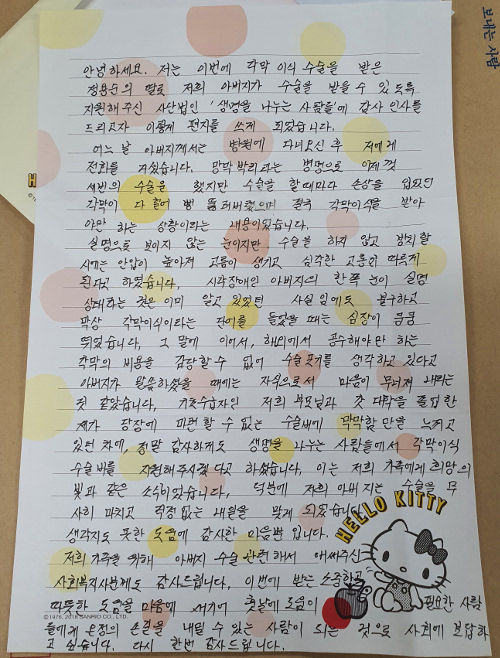 안녕하세요. 저는 이번에 각막 이식 수술을 받은
정용운의 딸로 저희 아버지가 수술을 받을 수 있도록
지원해주신 사단법인 '생명을 나누는 사람들'에 감사 인사를
드리고자 이렇게 편지를 쓰게 되었습니다.
어느 날 아버지께서는 병원에 다녀오신 후 저에게
전화를 거셨습니다. 망막 박리라는 병명으로 이제껏
세번의 수술을 했지만 수술을 할때마다 손상을 입었던
각막이 다 헐어 버렸으며 결국 각막이식을 받아
야만 하는 상황이라는 내용이었습니다.
실명으로 보이지 않는 눈이지만 수술을 하지 않고 방치할
시에는 안압이 높아져 고름이 생기고 심각한 고통이 따르게
된다고 하였습니다. 시각장애인 아버지의 한쪽 눈이 실명
상태라는 것은 이미 알고 있었던 사실임에도 불구하고
막상 각막이식이라는 단어를 들었을 때는 심장이 쿵쿵
뛰었습니다. 그 말에 이어서, 해외에서 운수해야만 하는
각막의 비용을 감당할 수 없어 수술포기를 생각하고 있다고
아버지가 말씀하셨을 때에는 자식으로서 마음이 무너져 내리는
것 같았습니다. 기초수급자인 저희 부모님과 갓 대학을 졸업한
제가 당장에 마련할 수 없는 수술비에 막막함만을 느끼고
있던 차에, 정말 감사하게도 생명을 나누는 사람들에서 각막이식
수술비를 지원해주시겠다고 하셨습니다. 이는 저희 가족에게 희망의
빛과 같은 소식이었습니다. 덕분에 저희 아버지는 수술을 무
사히 마치고 걱정 없는 내일을 맞게 되었습니다.
생각지도 못한 도움에 감사한 마음뿐입니다.
저희 가족을 위해 아버지 수술 관련해서 애써주신
사회복지사분께도 감사드립니다. 이번에 받은 소중하고
따뜻한 도움을 마음에 새기어 훗날에 도움이 필요한 사람
들에게 온정의 손길을 내밀 수 있는 사람이 되는 것으로 사회에 보답하
고 싶습니다. 다시 한번 감사드립니다.
HELLO KITTY
보내는 사람